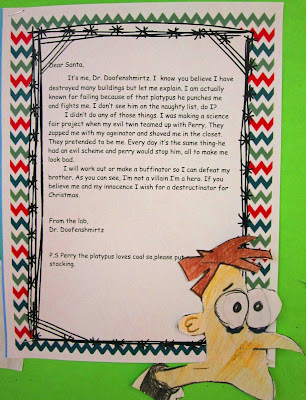 Dear Santa,
It's me, Dr. Doofenshmirtz. I know you believe I have
destroyed many buildings but let me explain. I am actually
known for failing because of that platypus he punches me
and fights me. I don't see him on the naughty list, do I?
I didn't do any of those things. I was making a science
fair project when my evil twin teamed up with Perry. They
zapped me with my ageinator and shoved me in the closet.
They pretended to be me. Every day it's the same thing-he
had an evil scheme and perry would stop him, all to make me
look bad.
I will work out or make a buffinator so I can defeat my
brother. As you can see, I'm not a villain I'm a hero. If you
believe me and my innocence I wish for a destructinator for
Christmas.
From the lab,
Dr. Doofenshmirtz
P.S Perry the platypus loves coal so please put
stocking.